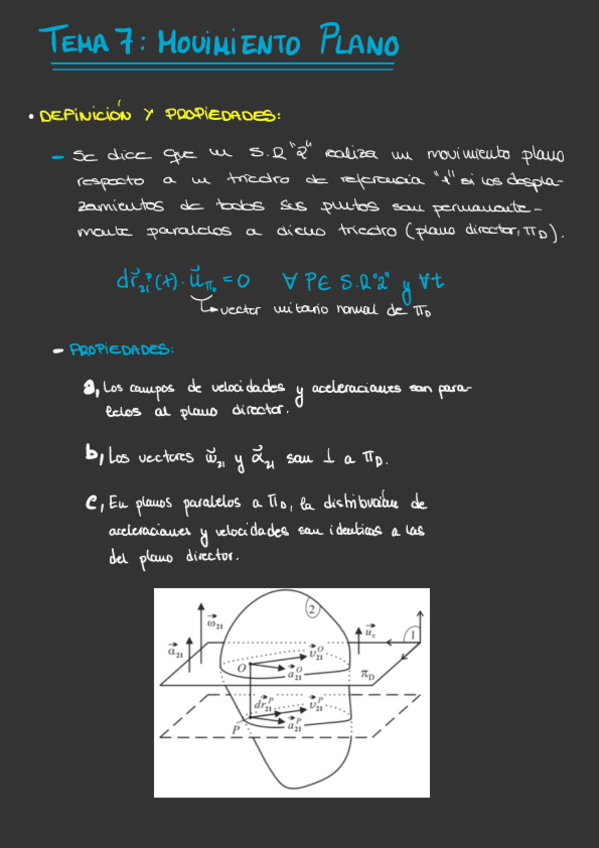 TEMA 7: MOVIMIENTO PLANO
• DEFINICIÓN Y PROPIEDADES:
- Se dice que un S.R "2" realiza un movimiento plano
respecto a un triedro de referencia "1" si los despla-
zamientos de todos sus puntos son permanente-
mente paralelos a dicho triedro (plano director, π_D).
dr⃗₂₁ᴾ(t)·u⃗_πD = 0 ∀ P ∈ S.R "2" y ∀t
↳ vector unitario normal de π_D
- PROPIEDADES:
a, Los campos de velocidades y aceleraciones son para-
lelos al plano director.
b, Los vectores ω⃗₂₁ y α⃗₂₁ son ⊥ a π_D.
c, En planos paralelos a π_D, la distribución de
aceleraciones y velocidades son identicas a las
del plano director.
2
ω⃗₂₁
α⃗₂₁
u⃗_π
1
O
v⃗₂₁ᴼ
a⃗₂₁ᴼ
π_D
dr⃗₂₁ᴾ
v⃗₂₁ᴾ
P
a⃗₂₁ᴾ